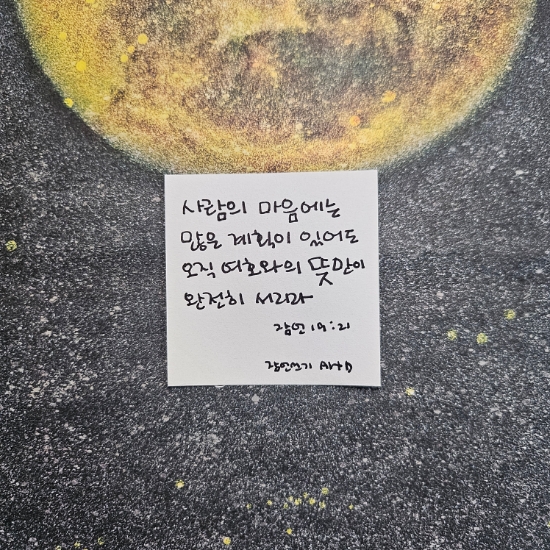 사람의 마음에는
많은 계획이 있어도
오직 여호와의 뜻만이
완전히 서리라
잠언 19:21
잠언쓰기 Art